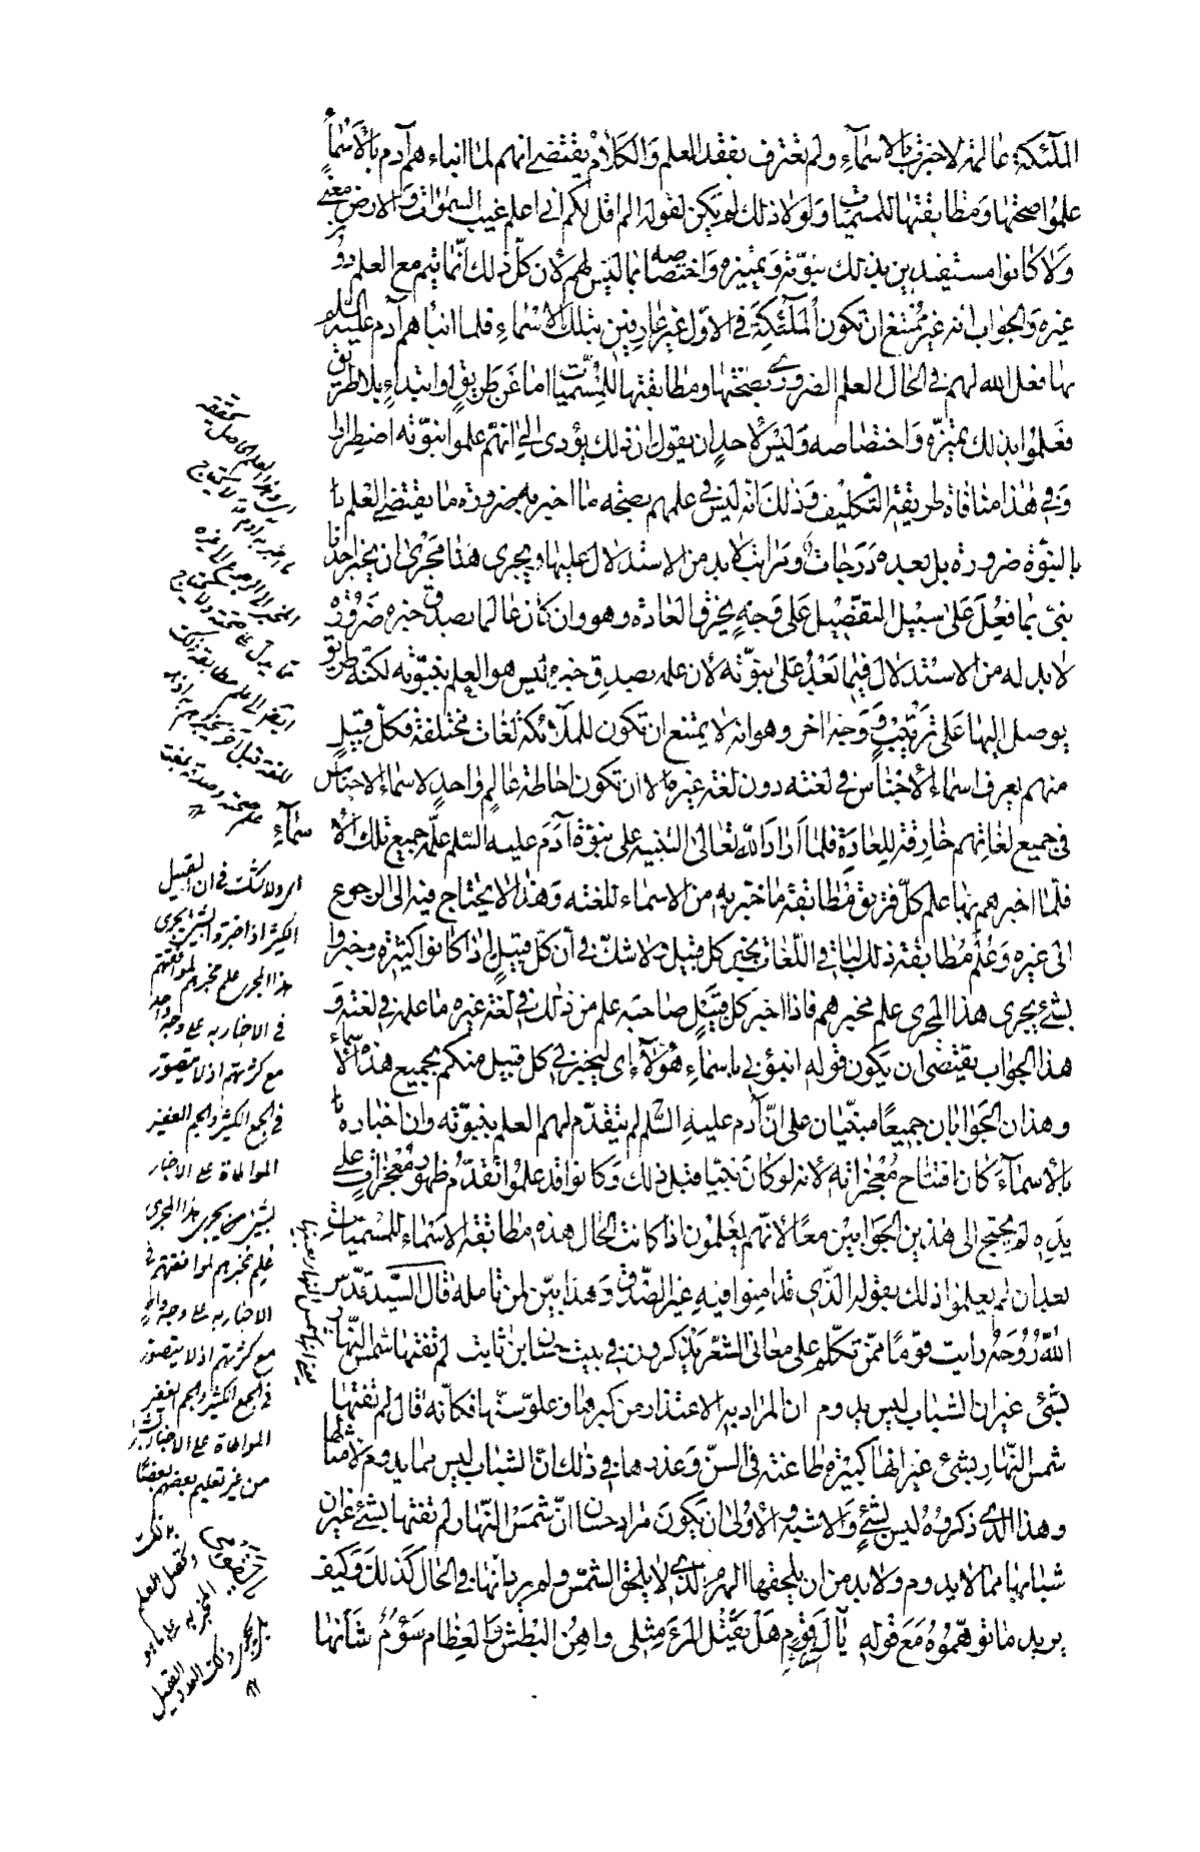 الملئكة عالمة لاخبرت بالاسمآء ولم تعترف بفقد العلم والكلام يقتضى انهم لما انباءهم آدم بالأسمآء
علموا صحتها ومطابقتها للمسميات ولولا ذلك لم يكن لقوله الم اقل لكم انى اعلم غيب السموات والارض معنى
ولا كانوا مستفيدين بذلك نبوته وتميزه واختصاصه بما ليس لهم لأن كل ذلك انما يتم مع العلم دون
غيره والجواب انه غير ممتنع ان تكون الملآئكة فى الاول غير عارفين بتلك الاسماء فلما انبأهم آدم عليه السلم
بها فعل الله لهم فى الحال العلم الضرورى بصحتها ومطابقتها للمسميات اما عن طريق او ابتداء بلا طريق
فعلموا بذلك تميزه واختصاصه وليس لأحد ان يقول ان ذلك يؤدى الى انهم علموا نبوته اضطرارا
وفى هذا منافاة طريقة التكليف وذلك انه ليس فى علمهم بصحه ما اخبر به ضرورة ما يقتضى العلم
بالنبوة ضرورة بل بعده درجات ومراتب لابد من الاستدلال عليها ويجرى هذا مجرى ان يخبر احدنا
نبى بما فعل على سبيل التفصيل على وجه يخرق العادة وهو وان كان عالما بصدق خبره ضرورة
لابد له من الاستدلال فيما بعد على نبوته لأن علمه بصدق خبره ليس هو العلم بنبوته لكنه طريق
يوصل اليها على ترتيب ووجه اخر وهو انه لا يمتنع ان تكون للملآئكة لغات مختلفة فكل قبيل
منهم يعرف اسماء الأجناس فى لغته دون لغة غيره الا ان تكون احاطة عالم واحد لاسماء الاجناس
فى جميع لغاتهم خارقة للعادة فلما اراد الله تعالى التنبيه على نبوة آدم عليه السلم علمه جميع تلك الأسمآء
فلما اخبرهم بها علم كل فريق مطابقة ما خبر به من الاسماء للغته وهذا لا يحتاج فيه الى الرجوع
الى غيره وعلم مطابقة ذلك لباقى اللغات بخبر كل قبيل ولا شك فى أن كل قبيل اذا كانوا كثيرة وخبروا
بشئ يجرى هذا المجرى علم مخبرهم فاذا اخبر كل قبيل صاحبه علم من ذلك فى لغة غيره ما علمه فى لغته و
هذا الجواب يقتضى ان يكون قوله انبؤنى باسماء هؤلآء اى ليخبرنى كل قبيل منكم بجميع هذه الأسمآء
وهذان الجوابان جميعا مبنيان على ان آدم عليه السلم لم يتقدم لهم العلم بنبوته وان اخباره
بالأسمآء كان افتتاح معجزاته لأنه لو كان نبيا قبل ذلك وكانوا قد علموا تقدم ظهور معجزات على
يده لم يحتج الى هذين الجوابين معا لأنهم يعلمون اذا كانت الحال هذه مطابقة الاسماء للمسميات
بعد ان لم يعلموا ذلك بقوله الذى قد امنوا فيه غير الصدق وهذا بين لمن تامله قال السيد قدس
الله روحه رايت قوما ممن تكلم على معانى الشعر يذكرون فى بيت حسان ابن ثابت لم تفتها شمس النهار
بشئ غير ان الشباب ليس يدوم ان المراد به الاعتذار من كبرها وعلو سنها فكانه قال لم تفتها
شمس النهار بشئ غير انها كبيرة طاعنة فى السن وعذرها فى ذلك ان الشباب ليس بما يدوم لامثالها
وهذا الذى ذكروه ليس بشئ والاشبه والأولى ان يكون مراد حسان ان شمس النهار لم تفتها بشئ غير ان
شبابها مما لا يدوم ولابد من ان يلحقها الهرم الذى لا يلحق الشمس ولم يرد انها فى الحال كذلك وكيف
يريد ما توهموه مع قوله يآل قوم هل يقتل المرء مثلى واهن البطش والعظام سؤم شأنها
ولا شك فى ان القبيل
الكثير اذا خبروا بشئ يجرى
هذا المجرى علم مخبرهم لموافقتهم
فى الاخبار به على وجه واحد
مع كثرتهم اذ لا يتصور
فى الجمع الكثير والجم الغفير
المواطاة على الاخبار
بشئ يجرى هذا المجرى
فعلم مخبرهم لموافقتهم فى
الاخبار به على وجه واحد
مع كثرتهم اذ لا يتصور
فى الجمع الكثير والجم الغفير
المواطاة على الاخبار
من غير تعليم بعضهم بعضا